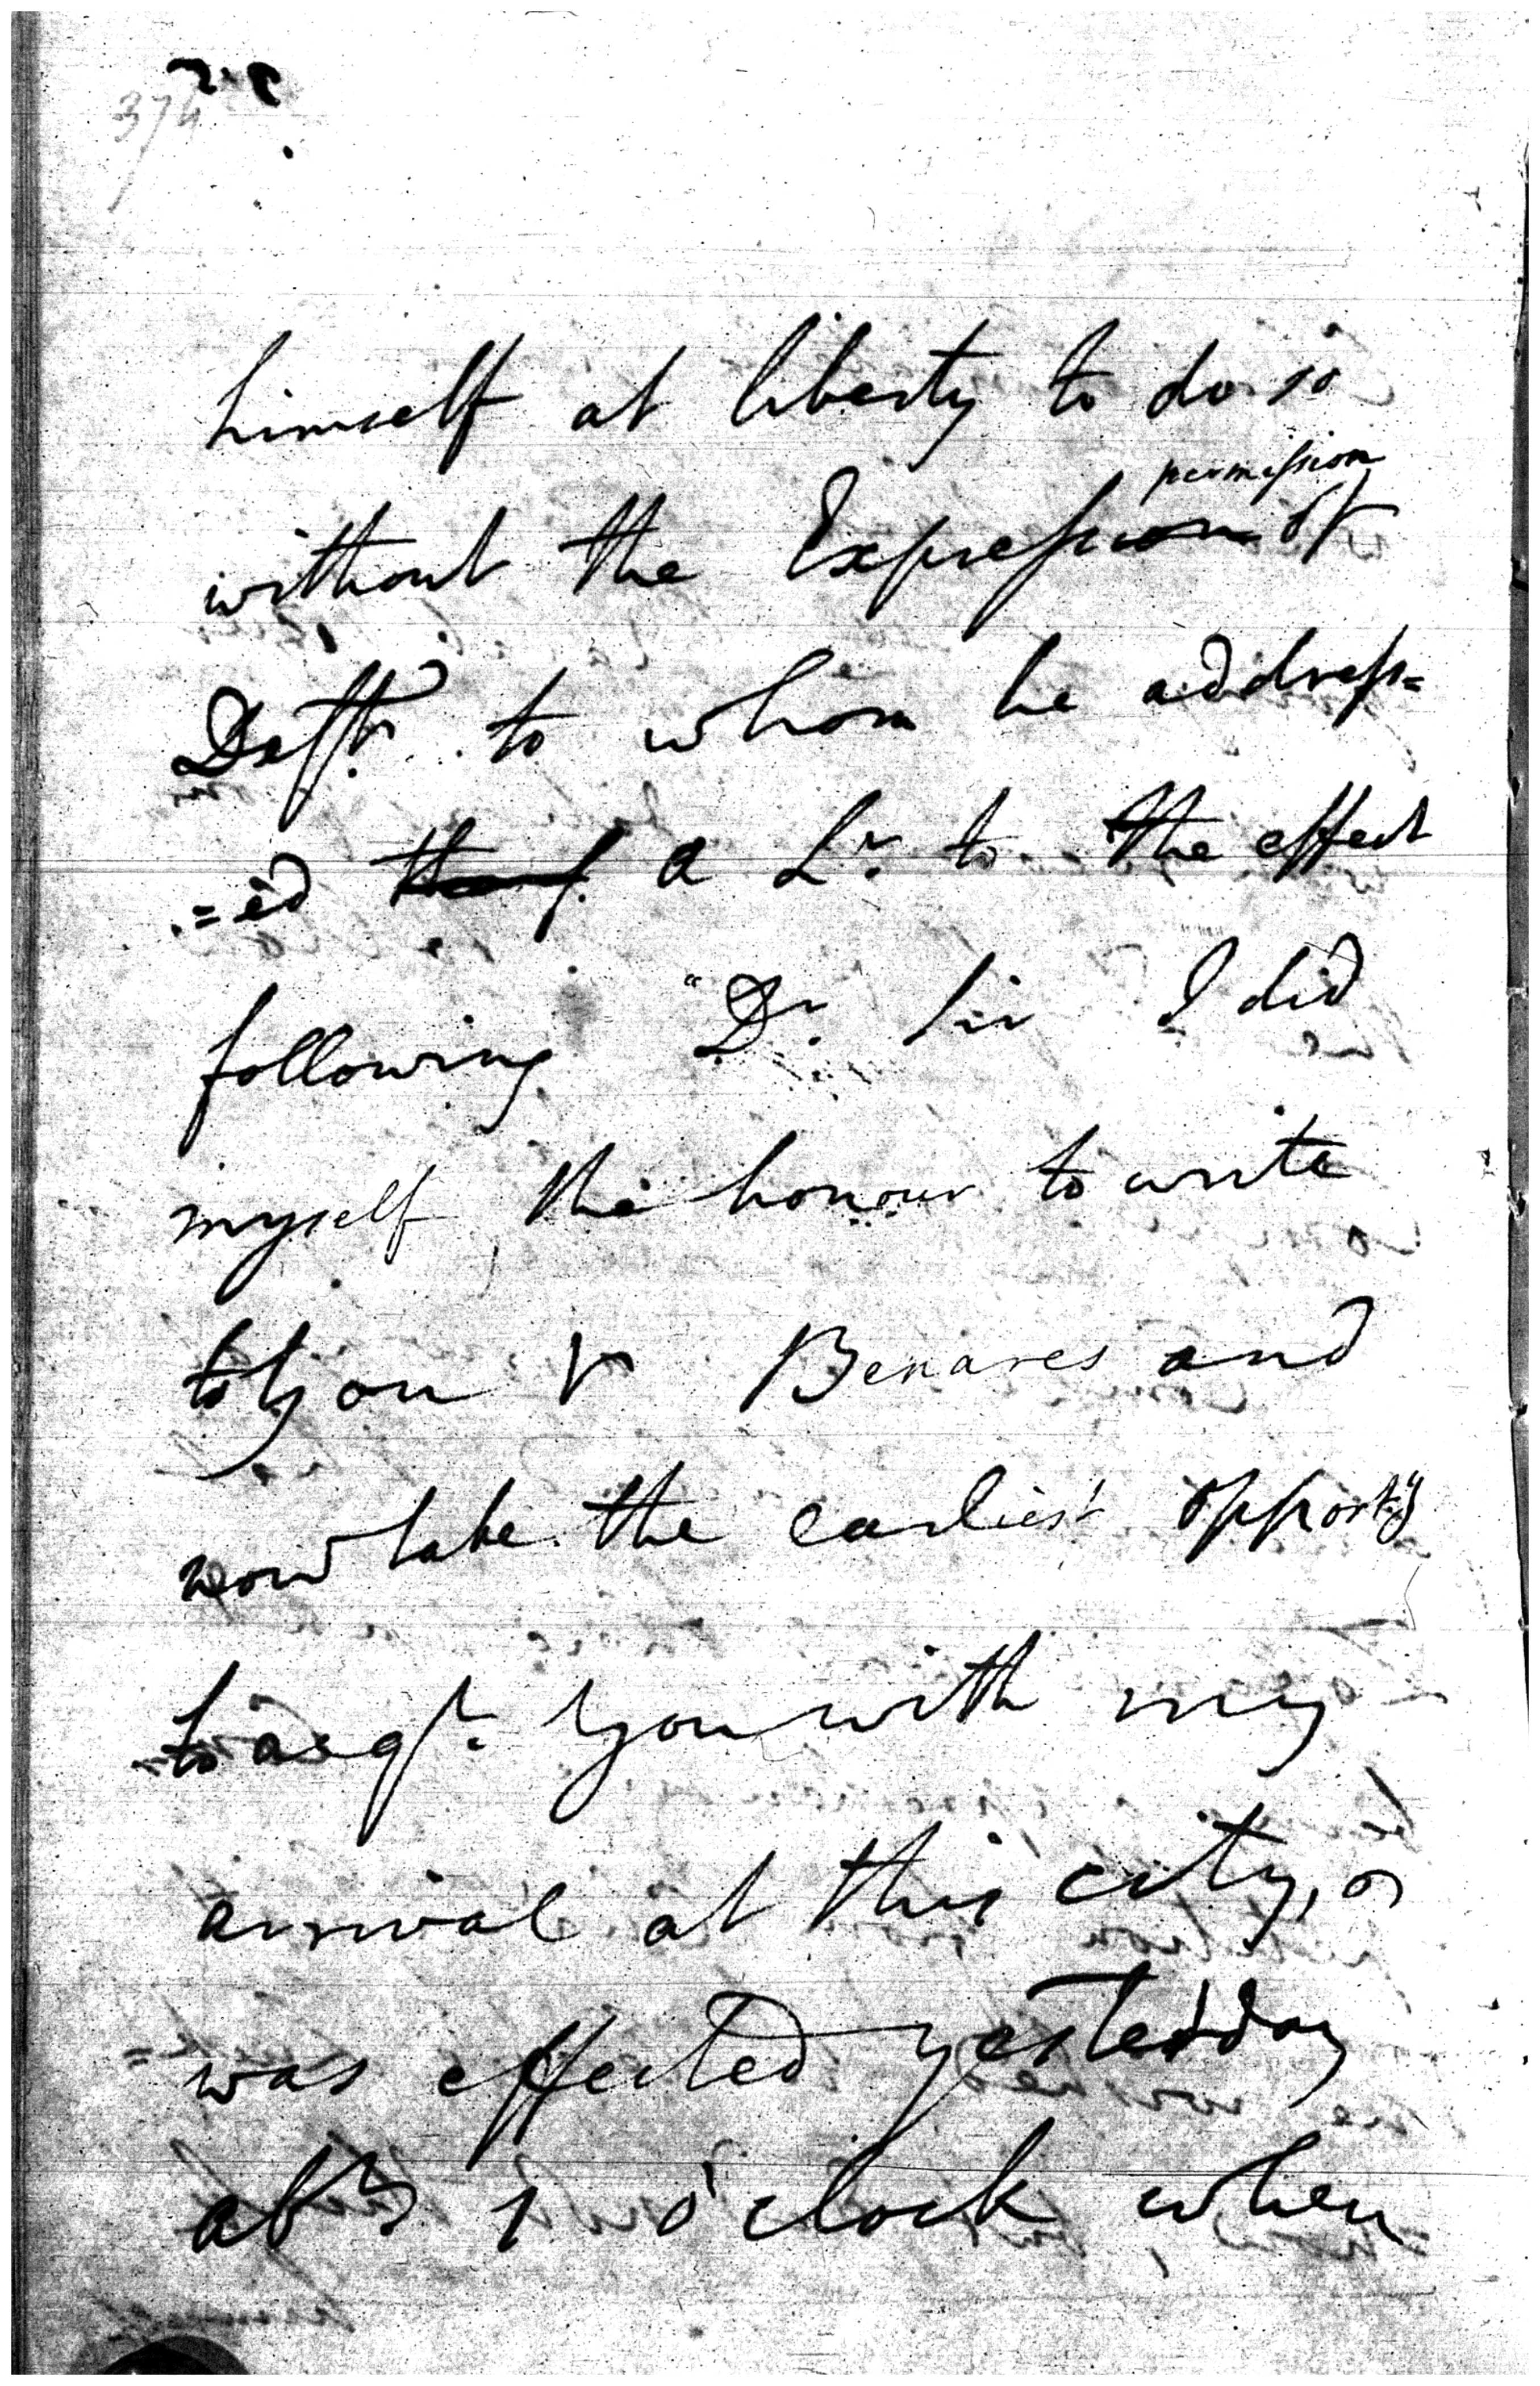 374
himself at liberty to do so
permission
without the Express of
Deft. to whom he address=
=ed a Lr. to the effect
following "Dr. Sir I did
myself the honour to write
to you fr Benares and
now take the earliest opporty
to acqt. you with my
arrival at this city,
was effected yesterday
abt 1 o'clock when